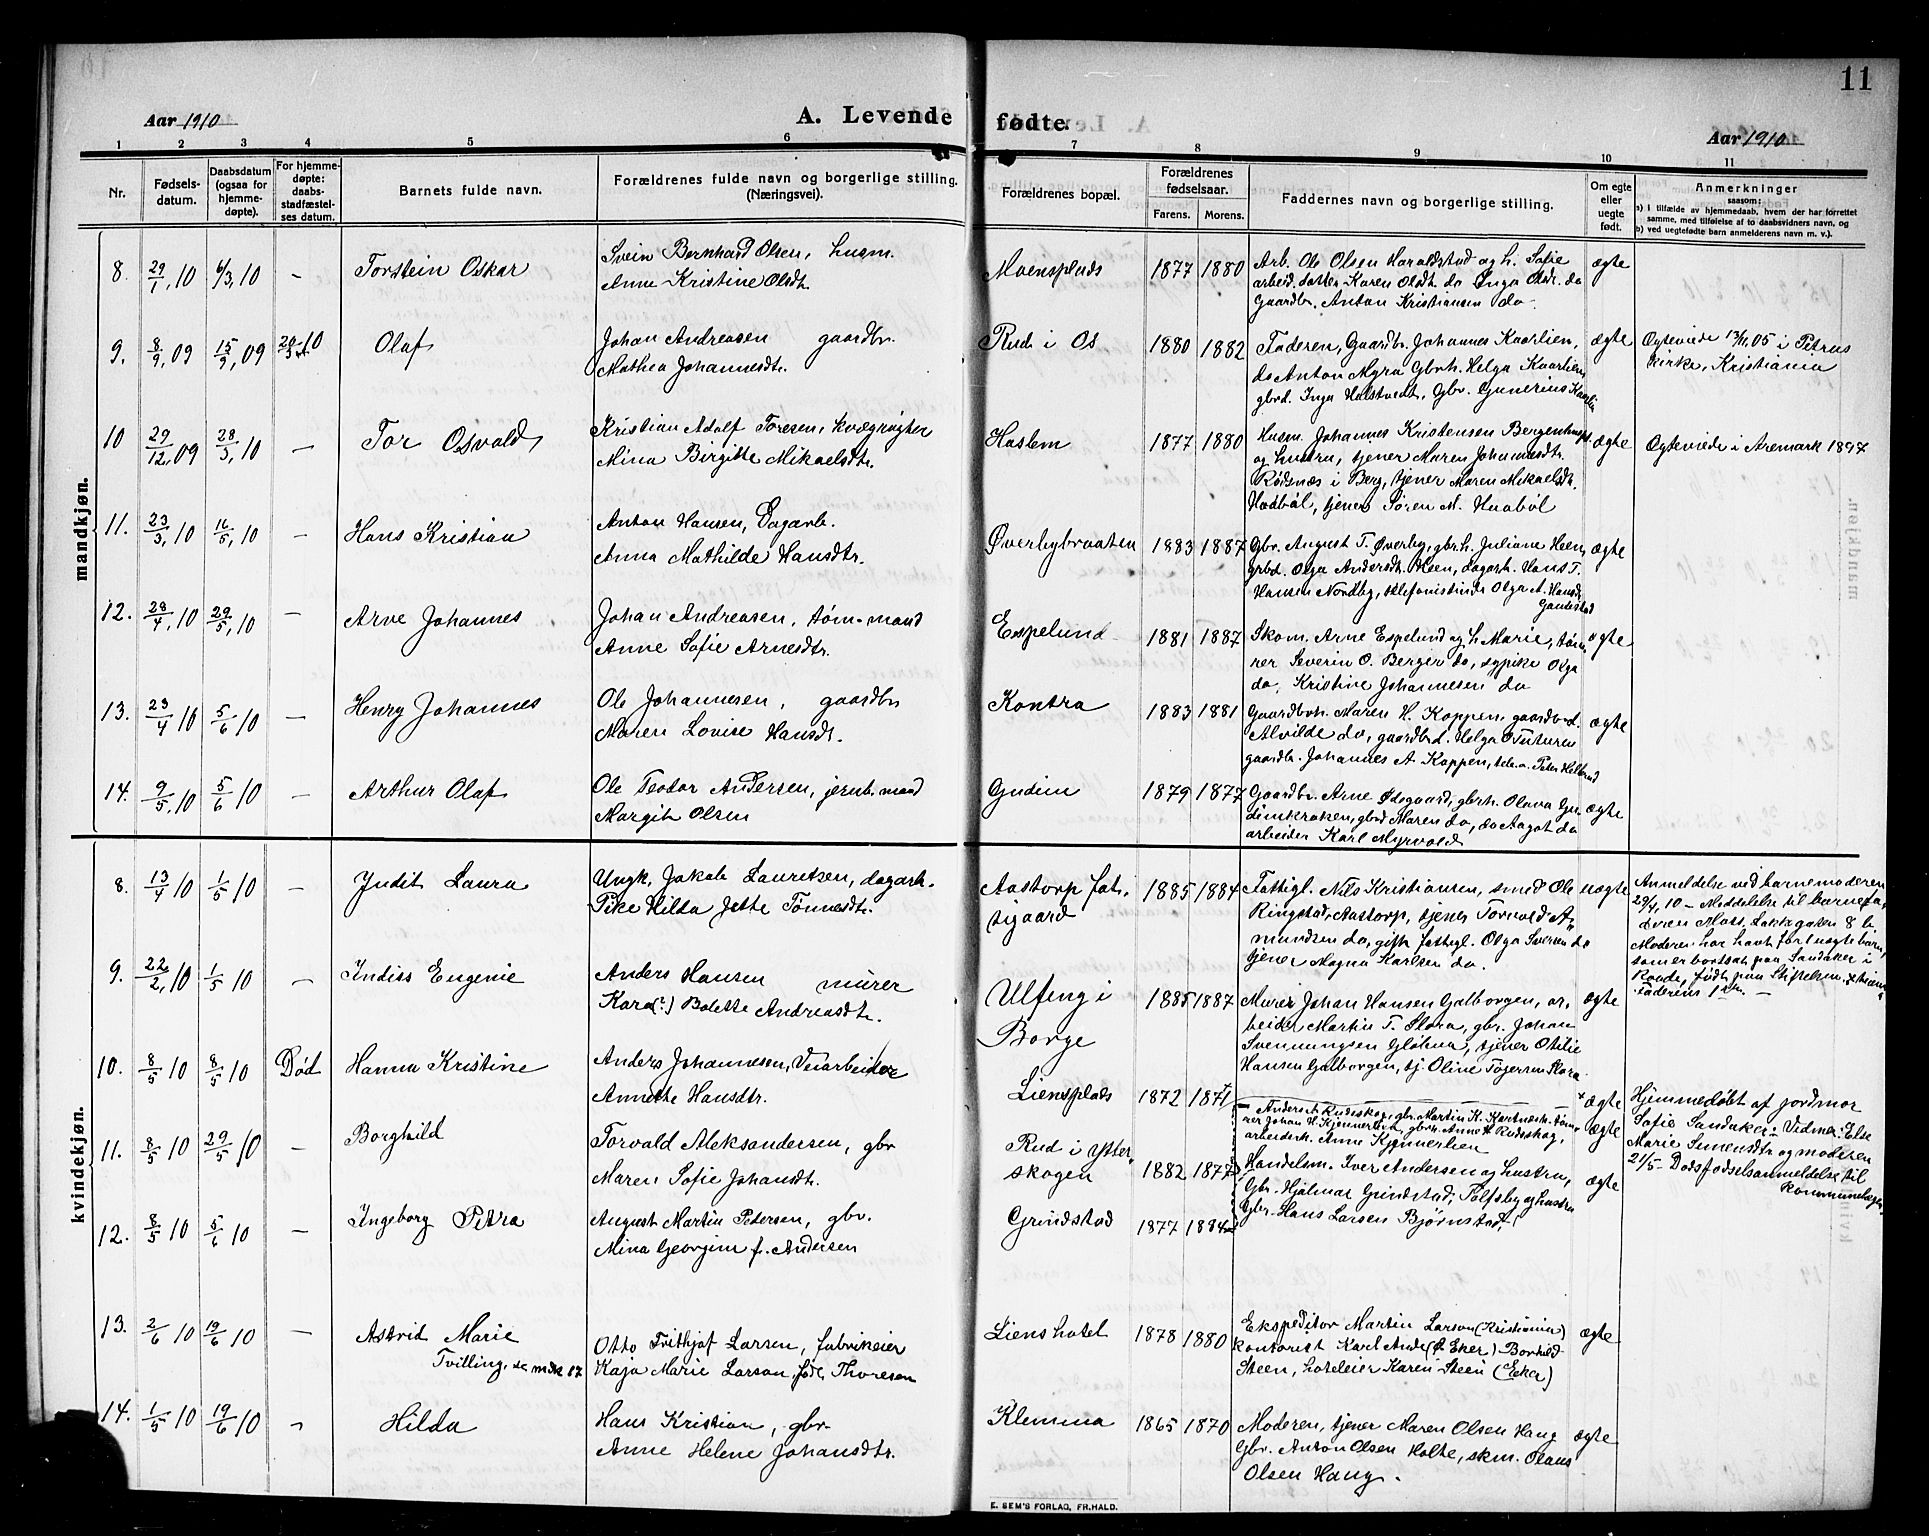 11
Aar 1910
A. Levende fødte.
Aar 1910
1 2 3 4 5 6 7 8 9 10 11
Nr.
Fødsels-
datum.
Daabsdatum
(ogsaa for
hjemme-
døpte).
For hjemme-
døpte:
daabs-
stadfæstel-
ses datum.
Barnets fulde navn.
Forældrenes fulde navn og borgerlige stilling.
(Næringsvei).
Forældrenes bopæl.
Forældrenes
fødselsaar.
Farens. Morens.
Faddernes navn og borgerlige stilling.
Om egte
eller
uegte
født.
Anmerkninger
saasom:
a) i tilfælde av hjemmedaab, hvem der har forrettet
samme, med tilføielse af to daabsvidners navn, og
b) ved uegtefødte barn anmelderens navn m. v.).
mandkjøn.
8. 29/1, 10 6/3, 10 - Torstein Oskar
Svein Bernhard Olsen, husm.
Anne Kristine Olsdt.
Moensplads 1877 1880
Arb. Ole Olsen Haraldstad og h. Sofie
arbeid. datter Karen Olsdt. do Inga Olsdt. do
Gaardbr. Anton Kristiansen do
ægte
9. 8/9, 09 15/9, 09 20/3 10 Olaf
Johan Andreasen gaardbr.
Mathea Johannesdtr.
Rud i Os 1880 1882
Faderen, Gaardbr. Johannes Kaarlien,
do Anton Myra Gbrh. Helga Kaarlien
gbrd. Inga Halstvedt, Gbr. Gunerius Kaarlie
ægte
Ogteviede 13/11, 05 i Petrus
kirke, Kristiania
10 29/12, 09 28/3, 10 - Tor Osvald
Kristian Adolf Toresen, kvægrøgter
Mina Birgitte Mikaelsdtr.
Haslem 1877 1880
Husm. Johannes Kristensen Bergenhus
og hustru, tjener Maren Johannesdtr.
Rødsnæs i Berg, tjener Maren Mikaelsdt.
Hodbøl, tjener Søren M. Huabøl
ægte
Ogteviede i Aremark 1897
11. 23/3, 10 16/5, 10 - Hans Kristian
Anton Hansen, Dagarb.
Anna Mathilde Hansdtr.
Øverbybraaten 1883 1887
Gbr. August T. Øverby, gbr.h. Juliane Heen,
grbd. Olga Andersdt. Heen, dagarb. Hans T.
Hansen Nordby, telefonistinde Olga A. Hansdt.
Gandestad
ægte
12. 28/4, 10 29/5, 10 - Arve Johannes
Johan Andreasen, tøm-mand
Anne Sofie Arnesdtr.
Espelund 1881 1887
Skom. Arne Espelund og h. Marie, tøm-
rer Severin O. Berger do, sypike Olga
do, Kristine Johannesen do
ægte
13. 23/4 10 5/6 10 - Henry Johannes
Ole Johannesen, gaardbr
Maren Lovise Hansdt.
Kontra 1883 1881
Gaardbrh. Maren H. Koppen, gaardbrd.
Alvilde do, gaardbrd. Helga Tuturen
gaardbr. Johannes A. Koppen, Peter
ægte
14. 9/5, 10 5/6 10 - Arthur Olaf
Ole Teodor Andersen, jernb. mand
Margit Olsen
Gudim 1879 1877
Gaardbr. Arne Ødegaard, gbrh. Olava Gu-
dimkroken, gbrd Maren do, do Aagot do
arbeider Karl Myrvold
ægte
kvindekjøn.
8. 13/4 10 1/5 10 - Judit Laura
Ungk. Jakob Lauretsen, dagarb.
Pike Hilda Jette Tønnesdtr.
Aastorp fat-
tigaard 1885 1884
Fattigl. Nils Kristiansen, smed Ole
Ringstad, Aastorp, tjener Torvald A-
mundsen do, gift fattigl. Olga Iversen do
tjener Magna Karlsen do.
uægte
Anmeldelse ved barnemoderen
29/4, 10 - Meddelelse til barnefa-
deren Moss. Laktegaten 8 b.
Moderen har havt før 1 uægte barn,
som er bortsat paa Sandaker i
Raade, født paa Stiftelsen, Kristiania
Faderens 1ste. -
9. 22/2, 10 1/5 10 - Indiss Eugenie
Anders Hansen murer
Kara(?) Bolette Andreasdtr.
Ulfeng i
Borge 1885 1887
Murer Johan Hansen Galborgen, ar-
beider Martin T. Slora, gbr. Johan
Svenningsen Glehua, tjener Otilie
Hansen Galborgen, tj. Oline Tøgersen Slora
ægte
10. 8/5 10 8/5 10 Død Hanna Kristine
Anders Johannesen, Veiarbeider
Annette Hansdtr.
Liensplads 1872 1871
ægte
Hjemmedøbt af jordmor
Sofie Sandaker. Vidner: Else
Marie Simensdtr og moderen
21/5 - Dødsfødselsanmeldelse til
11. 8/5 10 29/5 10 - Borghild
Torvald Aleksandersen, gbr
Maren Sofie Johansdt.
Rud i Ytter-
skogen 1882 1877
Anders A. Rudsskog, gbr. Martin K. tøm-
rer Johan H. Kjennerlien, gbrh. Anne A. Rudsskog,
arbeiderk. Anne Kjennerlien
ægte
12. 8/5 10 5/6 10 - Ingeborg Petra
August Martin Petersen, gbr.
Mina Georgine f. Andersen
Grindstad 1877 1884
Handelsm. Iver Andersen og hustru,
Gbr. Hjalmar Grindstad, Tolfsby og hustru
Gbr. Hans Larsen Bjørnstad
ægte
13. 2/6 10 19/6 10 - Astrid Marie
Tvilling, se mdk 17
Otto Frithjof Larsen, fabrikeier
Kaja Marie Larsen, født Thoresen
Lienshotel 1878 1880
Ekspeditør Martin Larson (Kristiania)
kontorist Karl Ande (Ø Eker) - Borhild
Steen, hoteleier Karen Steen (Eker)
ægte
14. 1/5 10 19/6 10 - Hilda
Hans Kristian, gbr
Anne Helene Johansdtr.
Klemma 1865 1870
Moderen, tjener Maren Olsen Haug
Gbr. Anton Olsen Holte, skm. Olaus
Olsen Haug.
ægte
E. SEM'S FORLAG, FR.HALD.